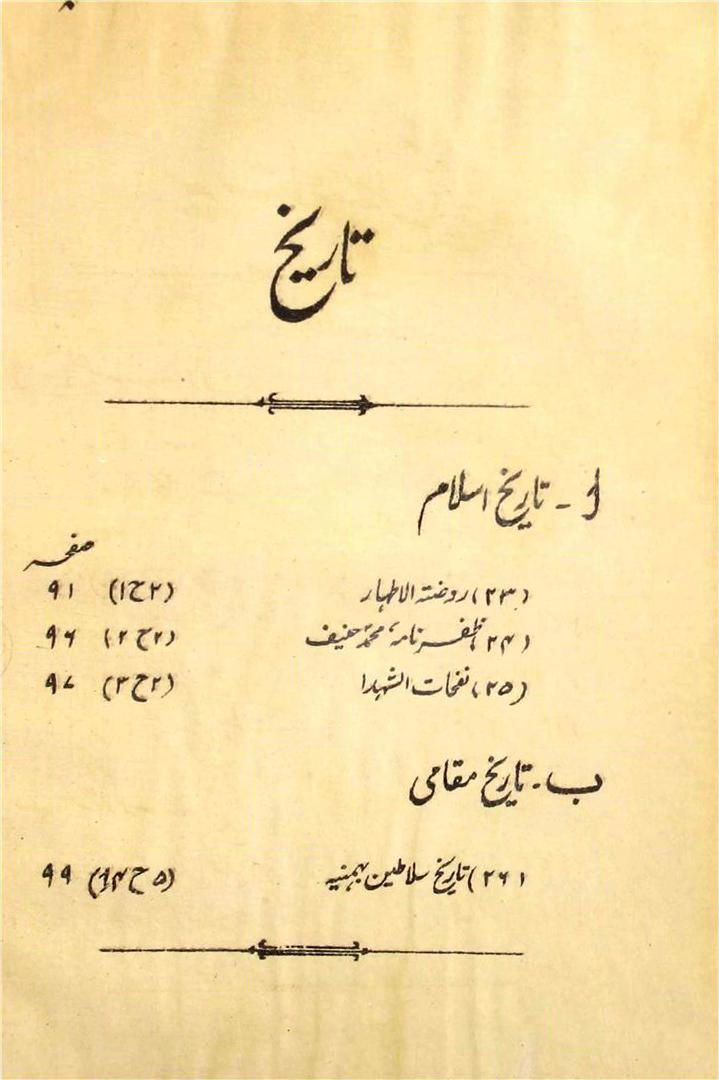 تاریخ
ا ۔ تاریخ اسلام
صفحہ
(۲۳) روضتہ الاطہار (۲ح۱) ۹۱
(۲۴) ظفر نامۂ محمد حنیف (۲ح۲) ۹۶
(۲۵) نفحات الشہدا (۲ح۳) ۹۷
ب ۔ تاریخ مقامی
(۲۶) تاریخ سلاطین بہمنیہ (۵ح۱۴) ۹۹